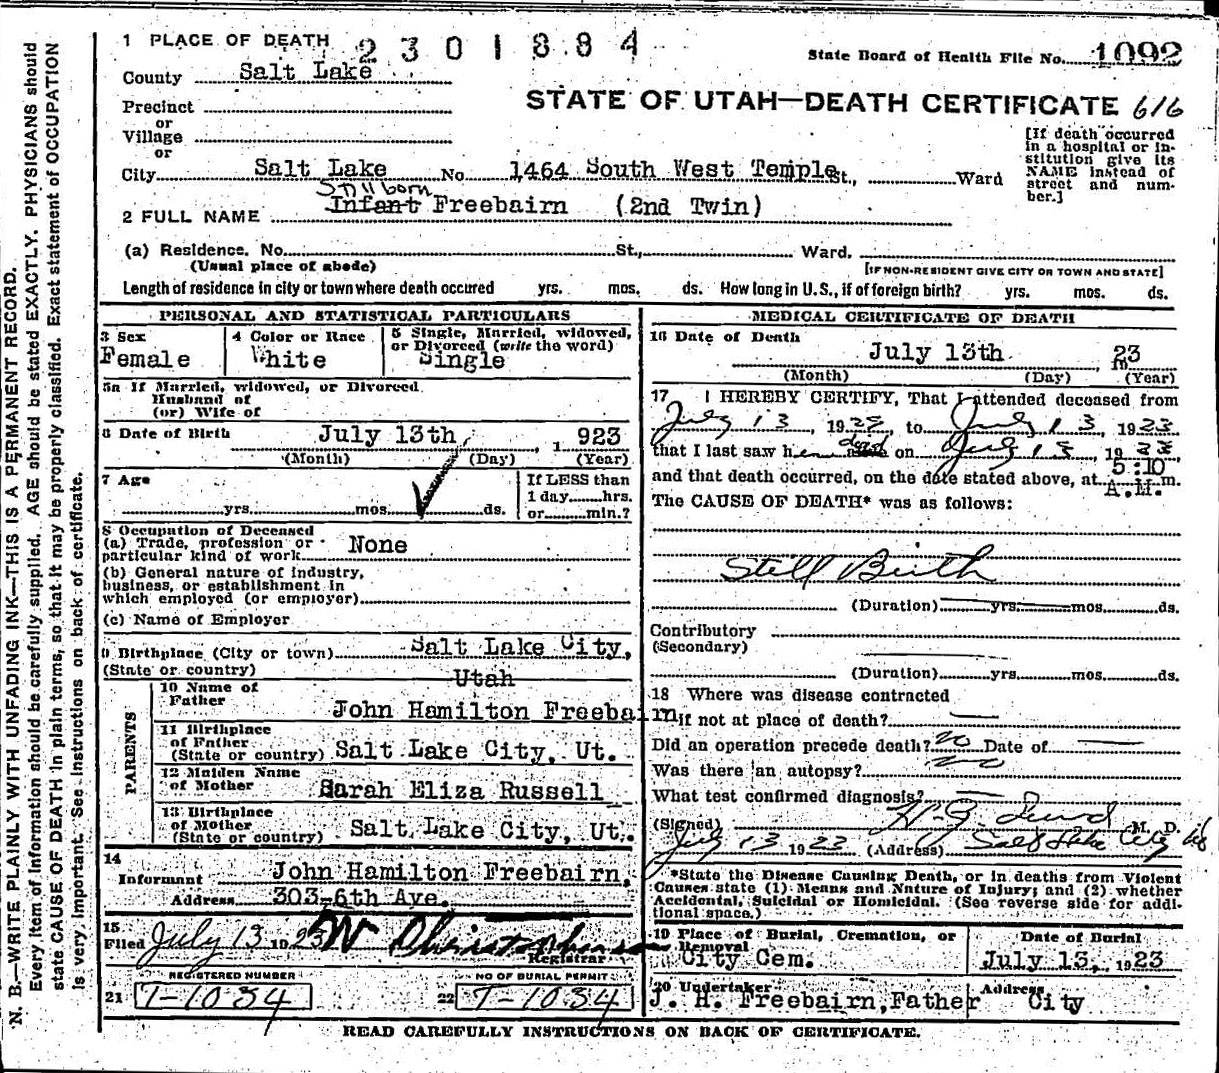 1 PLACE OF DEATH 2301884
State Board of Health File No. 1092
County Salt Lake
STATE OF UTAH—DEATH CERTIFICATE 616
Precinct
or
Village
or
City Salt Lake No. 1464 South West Temple St., Ward
[If death occurred in a hospital or institution give its NAME instead of street and number.]
Stillborn
2 FULL NAME Infant Freebairn (2nd Twin)
(a) Residence. No. St., Ward.
(Usual place of abode) [IF NON-RESIDENT GIVE CITY OR TOWN AND STATE]
Length of residence in city or town where death occured yrs. mos. ds. How long in U. S., if of foreign birth? yrs. mos. ds.
PERSONAL AND STATISTICAL PARTICULARS
3 Sex
Female
4 Color or Race
White
5 Single, Married, widowed,
or Divorced (write the word)
Single
5a If Married, widowed, or Divorced
Husband of
(or) Wife of
6 Date of Birth July 13th, 1923
(Month) (Day) (Year)
7 Age
yrs. mos. ds.
If LESS than
1 day hrs.
or min.?
8 Occupation of Deceased
(a) Trade, profession or
particular kind of work None
(b) General nature of industry,
business, or establishment in
which employed (or employer)
(c) Name of Employer
9 Birthplace (City or town) Salt Lake City,
(State or country) Utah
PARENTS
10 Name of
Father John Hamilton Freebairn
11 Birthplace
of Father
(State or country) Salt Lake City, Ut.
12 Maiden Name
of Mother Sarah Eliza Russell
13 Birthplace
of Mother
(State or country) Salt Lake City, Ut.
14
Informant John Hamilton Freebairn,
Address 303-6th Ave.
15
Filed July 13 1923 W Christopherson
Registrar
REGISTERED NUMBER
21 T-1034
NO OF BURIAL PERMIT
22 T-1034
MEDICAL CERTIFICATE OF DEATH
16 Date of Death
July 13th 23
(Month) (Day) (Year)
17 I HEREBY CERTIFY, That I attended deceased from
July 13, 1923, to July 13, 1923
that I last saw h dead on July 13, 1923
and that death occurred, on the date stated above, at 5:10 A.M. m.
The CAUSE OF DEATH* was as follows:
Still Birth
(Duration) yrs. mos. ds.
Contributory
(Secondary)
(Duration) yrs. mos. ds.
18 Where was disease contracted
If not at place of death?
Did an operation precede death? no Date of
Was there an autopsy? no
What test confirmed diagnosis?
(Signed) M. D.
July 13 1923 (Address) Salt Lake City
*State the Disease Causing Death, or in deaths from Violent
Causes state (1) Means and Nature of Injury; and (2) whether
Accidental, Suicidal or Homicidal. (See reverse side for addi-
tional space.)
19 Place of Burial, Cremation, or
Removal
City Cem.
Date of Burial
July 13, 1923
20 Undertaker
J. H. Freebairn, Father
Address
City
READ CAREFULLY INSTRUCTIONS ON BACK OF CERTIFICATE.
N. B.—WRITE PLAINLY WITH UNFADING INK—THIS IS A PERMANENT RECORD.
Every item of information should be carefully supplied. AGE should be stated EXACTLY. PHYSICIANS should
state CAUSE OF DEATH in plain terms, so that it may be properly classified. Exact statement of OCCUPATION
is very important. See instructions on back of certificate.